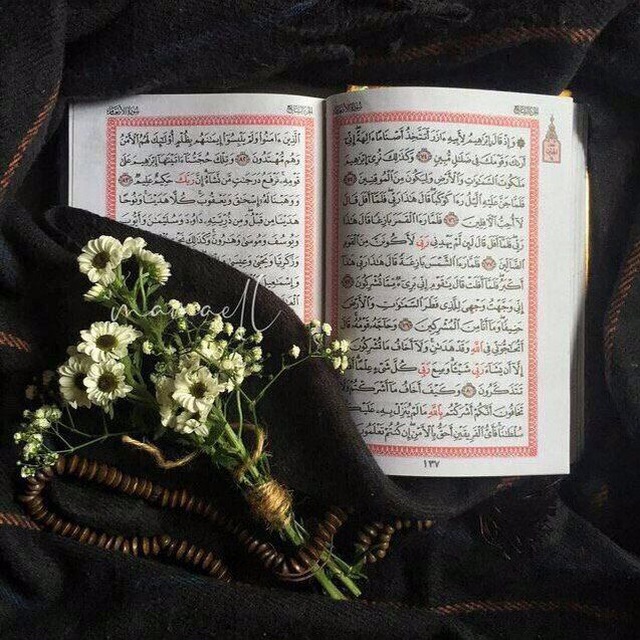 ۞ وَإِذْ قَالَ إِبْرَٰهِيمُ لِأَبِيهِ ءَازَرَ أَتَتَّخِذُ أَصْنَامًا ءَالِهَةً إِنِّىٓ
أَرَىٰكَ وَقَوْمَكَ فِى ضَلَٰلٍ مُّبِينٍ ٧٤ وَكَذَٰلِكَ نُرِىٓ إِبْرَٰهِيمَ
مَلَكُوتَ ٱلسَّمَٰوَٰتِ وَٱلْأَرْضِ وَلِيَكُونَ مِنَ ٱلْمُوقِنِينَ ٧٥
فَلَمَّا جَنَّ عَلَيْهِ ٱلَّيْلُ رَءَا كَوْكَبًا قَالَ هَٰذَا رَبِّى فَلَمَّآ أَفَلَ قَالَ
لَآ أُحِبُّ ٱلْـَٔافِلِينَ ٧٦ فَلَمَّا رَءَا ٱلْقَمَرَ بَازِغًا قَالَ هَٰذَا
رَبِّى فَلَمَّآ أَفَلَ قَالَ لَئِن لَّمْ يَهْدِنِى رَبِّى لَأَكُونَنَّ مِنَ ٱلْقَوْمِ
ٱلضَّآلِّينَ ٧٧ فَلَمَّا رَءَا ٱلشَّمْسَ بَازِغَةً قَالَ هَٰذَا رَبِّى هَٰذَآ
أَكْبَرُ فَلَمَّآ أَفَلَتْ قَالَ يَٰقَوْمِ إِنِّى بَرِىٓءٌ مِّمَّا تُشْرِكُونَ ٧٨
إِنِّى وَجَّهْتُ وَجْهِىَ لِلَّذِى فَطَرَ ٱلسَّمَٰوَٰتِ وَٱلْأَرْضَ
حَنِيفًا وَمَآ أَنَا۠ مِنَ ٱلْمُشْرِكِينَ ٧٩ وَحَآجَّهُۥ قَوْمُهُۥ قَالَ
أَتُحَٰٓجُّوٓنِّى فِى ٱللَّهِ وَقَدْ هَدَىٰنِ وَلَآ أَخَافُ مَا تُشْرِكُونَ
بِهِۦٓ إِلَّآ أَن يَشَآءَ رَبِّى شَيْـًٔا وَسِعَ رَبِّى كُلَّ شَىْءٍ عِلْمًا أَفَلَا
تَتَذَكَّرُونَ ٨٠ وَكَيْفَ أَخَافُ مَآ أَشْرَكْتُمْ وَلَا
تَخَافُونَ أَنَّكُمْ أَشْرَكْتُم بِٱللَّهِ مَا لَمْ يُنَزِّلْ بِهِۦ عَلَيْكُمْ
سُلْطَٰنًا فَأَىُّ ٱلْفَرِيقَيْنِ أَحَقُّ بِٱلْأَمْنِ إِن كُنتُمْ تَعْلَمُونَ
١٣٧
ٱلَّذِينَ ءَامَنُوا۟ وَلَمْ يَلْبِسُوٓا۟ إِيمَٰنَهُم بِظُلْمٍ أُو۟لَٰٓئِكَ لَهُمُ ٱلْأَمْنُ
وَهُم مُّهْتَدُونَ ٨٢ وَتِلْكَ حُجَّتُنَآ ءَاتَيْنَٰهَآ إِبْرَٰهِيمَ عَلَىٰ
قَوْمِهِۦ نَرْفَعُ دَرَجَٰتٍ مَّن نَّشَآءُ إِنَّ رَبَّكَ حَكِيمٌ عَلِيمٌ ٨٣
وَوَهَبْنَا لَهُۥٓ إِسْحَٰقَ وَيَعْقُوبَ كُلًّا هَدَيْنَا وَنُوحًا
هَدَيْنَا مِن قَبْلُ وَمِن ذُرِّيَّتِهِۦ دَاوُۥدَ وَسُلَيْمَٰنَ وَأَيُّوبَ
وَيُوسُفَ وَمُوسَىٰ وَهَٰرُونَ وَكَذَٰلِكَ
وَزَكَرِيَّا وَيَحْيَىٰ وَعِيسَىٰ
وَإِسْمَٰعِيلَ